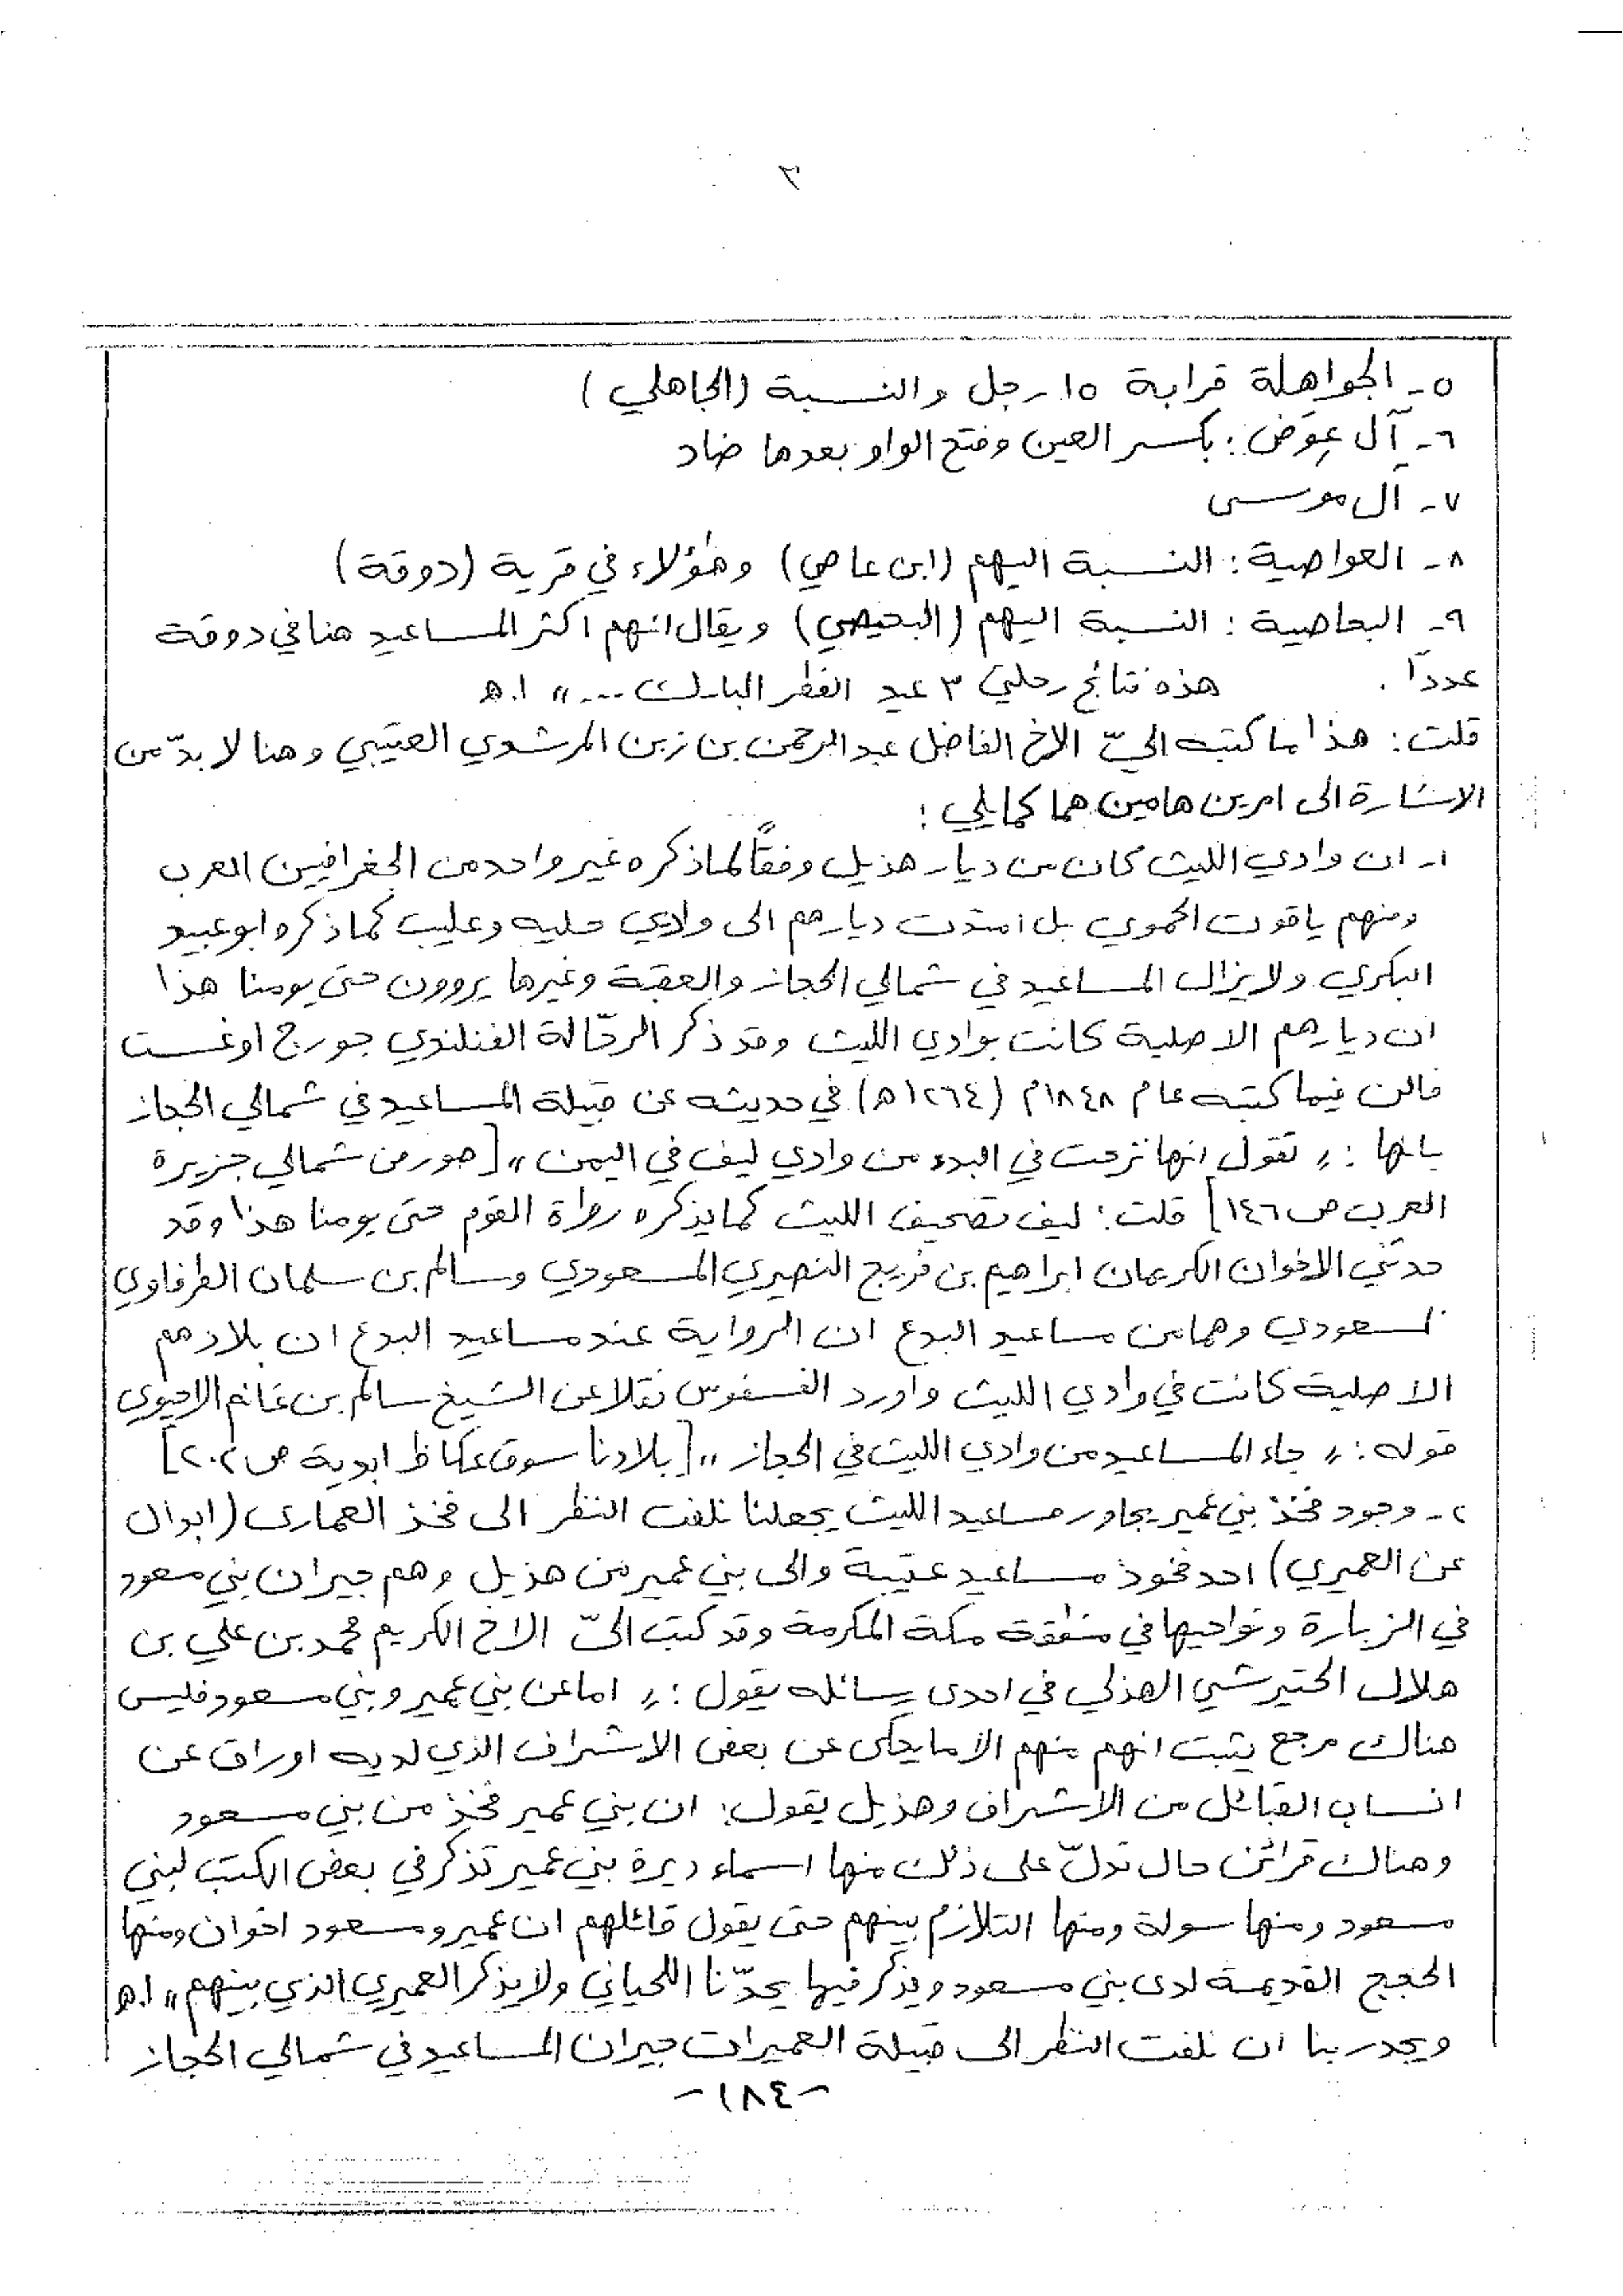 ٣
٥- الجواهلة قرابة ١٥ رجل والنسبة (الجاهلي)
٦- آل عِوَض: بكسر العين وفتح الواو بعدها ضاد
٧- آل موسى
٨- العواصية: النسبة اليهم (ابن عاصي) وهؤلاء في قرية (دوقة)
٩- البعاصية: النسبة اليهم (البعيصي) ويقال انهم اكثر المساعيد هنا في دوقة
عدداً. هذه نتائج رحلتي ٣ عيد الفطر المبارك ...،، ا.ه
قلت: هذا ما كتبه اليّ الاخ الفاضل عبد الرحمن بن زبن المرشدي العتيبي وهنا لا بدّ من
الاشارة الى امرين هامين هما كما يلي:
١- ان وادي الليث كان من ديار هذيل وفقاً لما ذكره غير واحد من الجغرافيين العرب
ومنهم ياقوت الحموي بل امتدت ديارهم الى وادي حليه وعليب كما ذكره ابو عبيد
البكري ولا يزال المساعيد في شمالي الحجاز والعقبة وغيرها يروون حتى يومنا هذا
ان ديارهم الاصلية كانت بوادي الليث وقد ذكر الرحّالة الفنلندي جورج اوغست
فالن فيما كتبه عام ١٨٤٨م (١٢٦٤ه) في حديثه عن قبيلة المساعيد في شمالي الحجاز
بانها: ,, تقول انها نزحت في البدء من وادي ليف في اليمن ,, [صور من شمالي جزيرة
العرب ص ١٤٦] قلت: ليف تصحيف الليث كما يذكره رواة القوم حتى يومنا هذا وقد
حدثني الاخوان الكريمان ابراهيم بن فريج النصيري المسعودي وسالم بن سلمان الطرفاوي
المسعودي وهما من مساعيد البدع ان الرواية عند مساعيد البدع ان بلادهم
الاصلية كانت في وادي الليث واورد الفسفوس نقلا عن الشيخ سالم بن غانم الاحيوي
قوله: ,, جاء المساعيد من وادي الليث في الحجاز ,, [بلادنا سوق عكاظ ابدية ص ٢٠٢]
٢- وجود فخذ بني عمير يجاور مساعيد الليث يجعلنا نلفت النظر الى فخذ العمارى (ابدال
عن العميري) احد فخوذ مساعيد عتيبة والى بني عمير من هذيل وهم جيران بني مسعود
في الزبارة ونواحيها في منطقة مكة المكرمة وقد كتب اليّ الاخ الكريم محمد بن علي بن
هلال الحتيرشي الهذلي في احدى رسائله يقول: ,, اما عن بني عمير وبني مسعود فليس
هناك مرجع يثبت انهم منهم الا ما يحكى عن بعض الاشراف الذي لديه اوراق عن
انساب القبائل من الاشراف وهذيل يقول: ان بني عمير فخذ من بني مسعود
وهناك قرائن حال تدلّ على ذلك منها اسماء ديرة بني عمير تذكر في بعض الكتب لبني
مسعود ومنها سولة ومنها التلازم بينهم حتى يقول قائلهم ان عمير ومسعود اخوان ومنها
الحجج القديمة لدى بني مسعود ويذكر فيها يحدّنا اللحياني ولا يذكر العميري الذي بينهم ,, ا.ه
ويجدر بنا ان نلفت النظر الى قبيلة العميرات جيران المساعيد في شمالي الحجاز
-١٨٤-